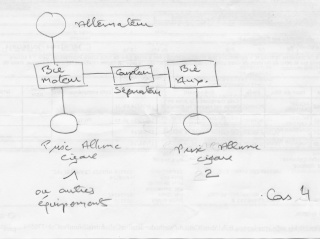 Alternateur
Bie
moteur
Coupleur
Séparateur
Bie
Aux.
Prise Allume
cigare
1
ou autres
équipement
Prise Allume
cigare
2
Cas 4